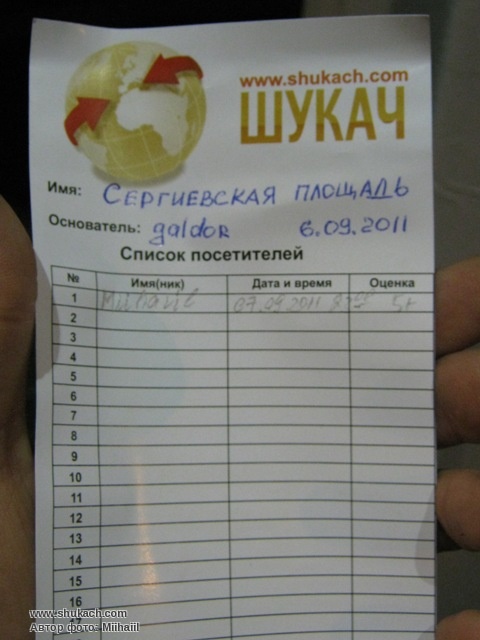 www.shukach.com
ШУКАЧ
Имя: СЕРГИЕВСКАЯ ПЛОЩАДЬ
Основатель: galdor 6.09.2011
Список посетителей
№ Имя(ник) Дата и время Оценка
1 07.09.2011 5+
2
3
4
5
6
7
8
9
10
11
12
13
14
15
16
17
www.shukach.com
Автор фото: Miihaiil